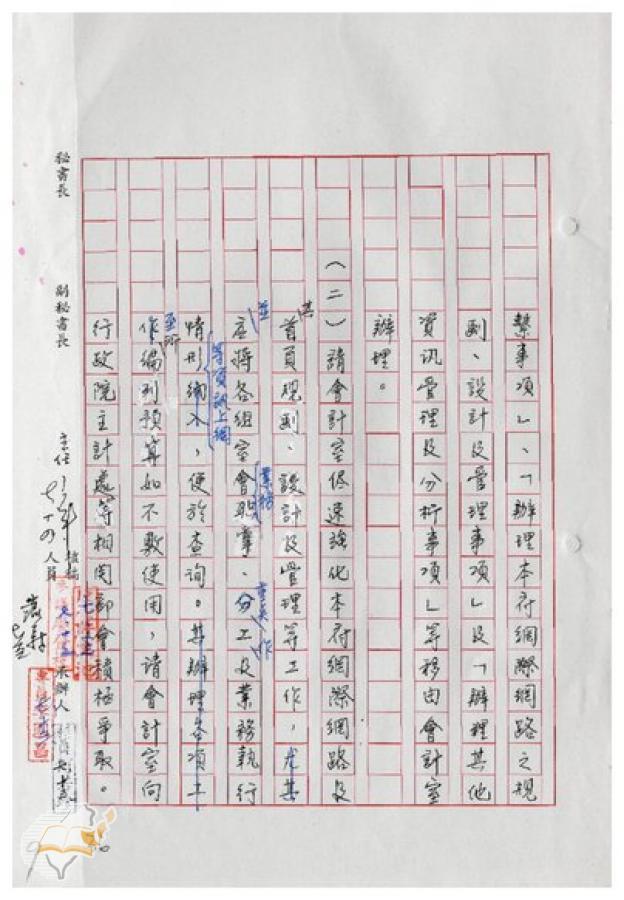 繫事項」、「辦理本府網際網路之規
劃、設計及管理事項」及「辦理其他
資訊管理及分析事項」等移由會計室
辦理。
（二）請會計室儘速強化本府網際網路及
其
首頁規劃、設計及管理等工作，尤其
並
應將各組室會職掌、分工及業務執行
業務
情形納入，便於查詢。其辦理各項工
等資訊上網
至所
作編列預算如不敷使用，請會計室向
行政院主計處等相關部會積極爭取。
秘書長
副秘書長
主任
核稿人員
承辦人